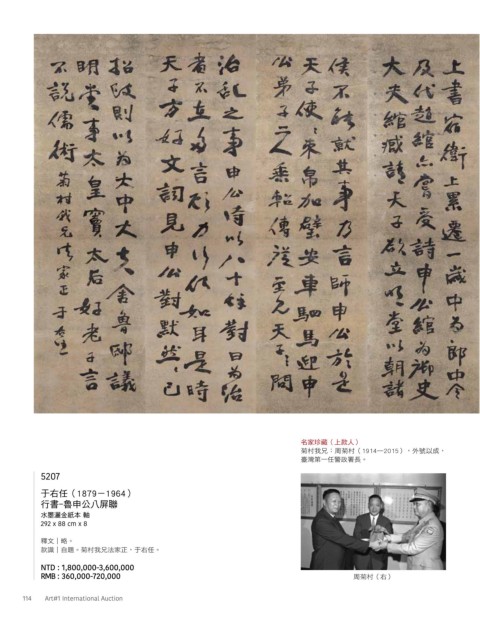 上書宿衛上累遷一歲中為郎中令
及代趙綰亦嘗受詩申公綰為御史
大夫綰臧請天子欲立明堂以朝諸
侯不能就其事乃言師申公於是
天子使〻束帛加璧安車駟馬迎申
公弟子二人乘軺傳從至見天子〻問
治亂之事申公時以八十餘對曰為治
者不在多言顧力行何如耳是時
天子方好文詞見申公對默然〻已
招致則以為太中大夫舍魯邸議
明堂事太皇竇太后好老子言
不說儒術 菊村我兄法家正 于右任
名家珍藏（上款人）
菊村我兄：周菊村（1914—2015），外號以成，
臺灣第一任警政署長。
5207
于右任（1879－1964）
行書–魯申公八屏聯
水墨灑金紙本 軸
292 x 88 cm x 8
釋文｜略。
款識｜自題。菊村我兄法家正，于右任。
NTD : 1,800,000-3,600,000
RMB : 360,000-720,000
周菊村（右）
114 Art#1 International Auction